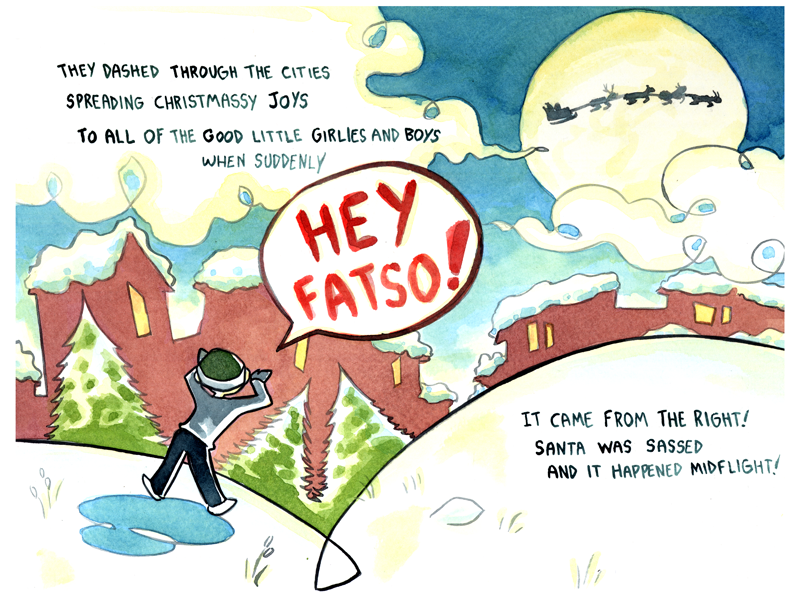 THEY DASHED THROUGH THE CITIES
SPREADING CHRISTMASSY JOYS
TO ALL OF THE GOOD LITTLE GIRLIES AND BOYS
WHEN SUDDENLY
HEY
FATSO!
IT CAME FROM THE RIGHT!
SANTA WAS SASSED
AND IT HAPPENED MIDFLIGHT!